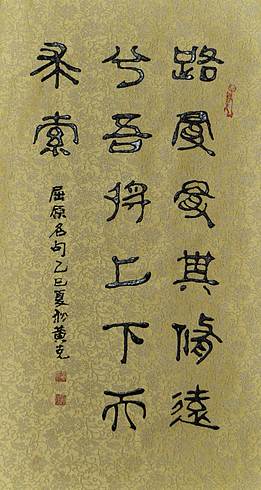 路曼曼其脩遠
兮吾將上下而
求索
屈原名句乙巳夏黄克